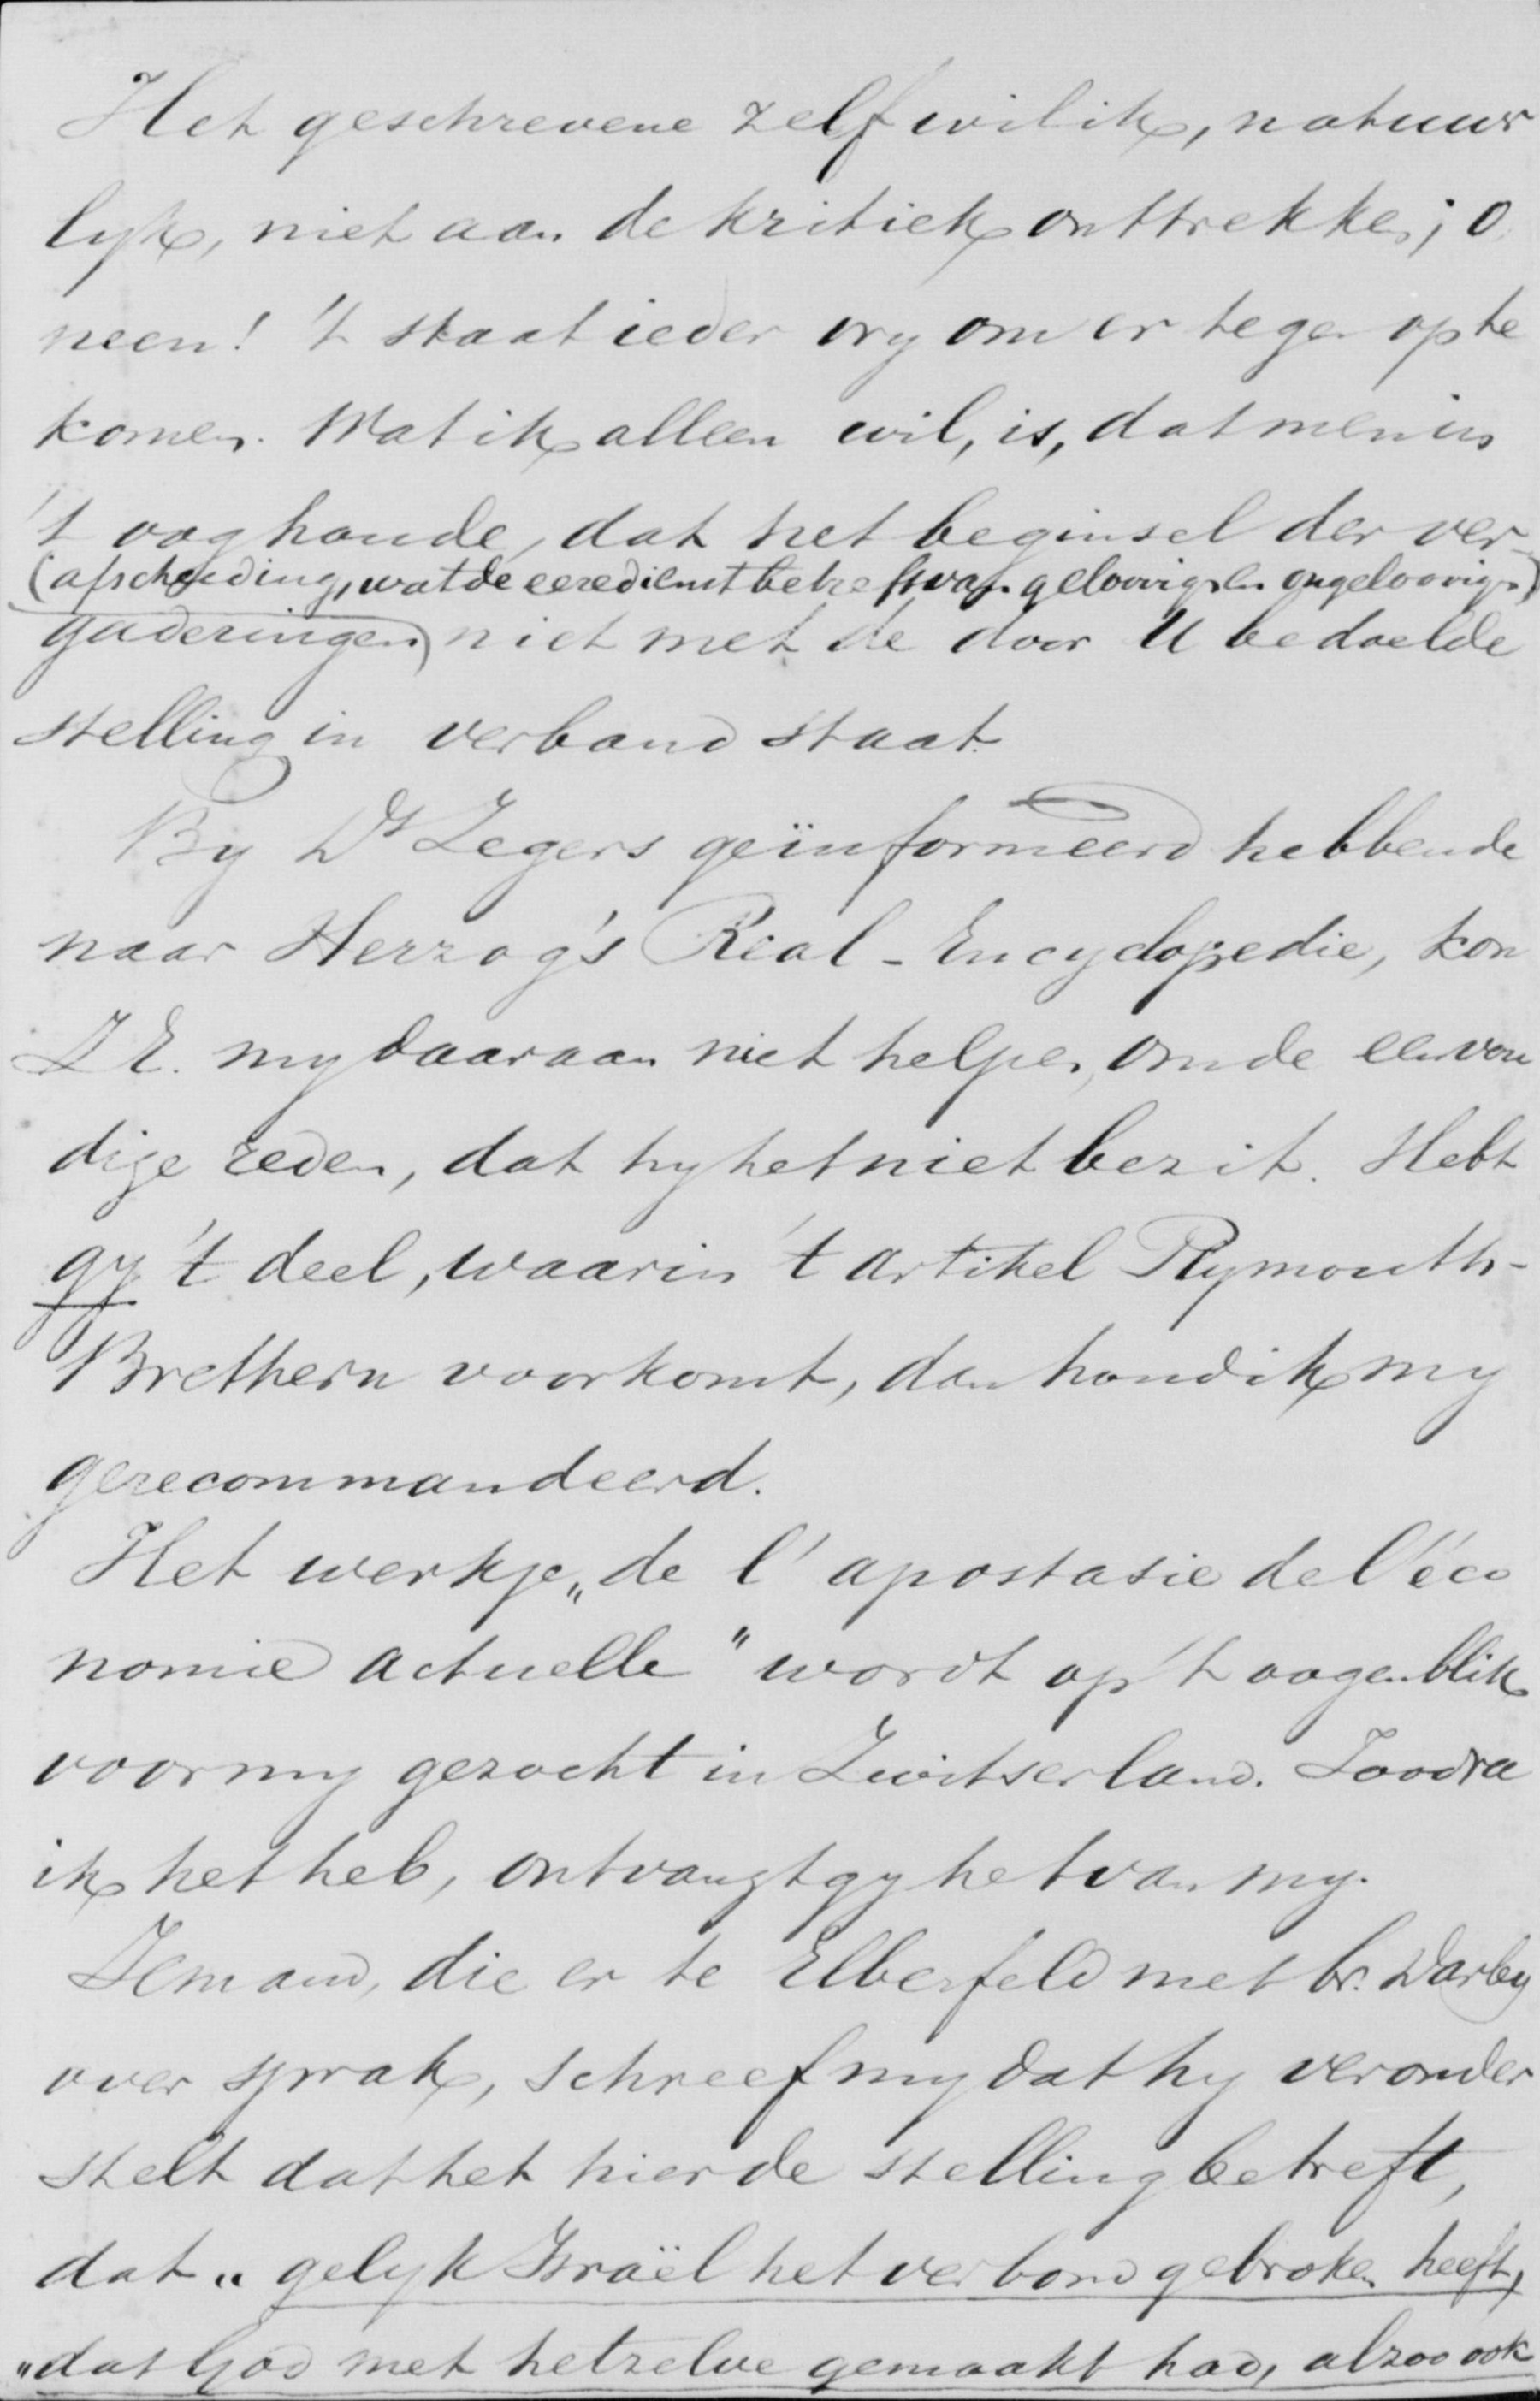 Het geschrevene zelf wil ik, natuur
lyk, niet aan de kritiek onttrekken; o
neen! 't staat ieder vry om er tegen op te
komen. Wat ik alleen wil, is, dat men in
't oog houde, dat het beginsel der ver-
(afscheiding, wat de eeredienst betreft van geloovigen en ongeloovigen)
gaderingen) niet met de door U bedoelde
stelling in verband staat.
By Ds Zegers geïnformeerd hebbende
naar Herzog's Real-Encyclopedie, kon
Z E. my daaraan niet helpen, om de eenvou
dige reden, dat hy het niet bezit. Hebt
gy 't deel, waarin 't artikel Plymouth-
Brethern voorkomt, dan houd ik my
gerecommandeerd.
Het werkje „de l'apostasie de l'éco
nomie actuelle" wordt op 't oogenblik
voor my gezocht in Zwitserland. Zoodra
ik het heb, ontvangt gy het van my.
Iemand, die er te Elberfeld met br. Darby
over sprak, schreef my dat hy veronder
stelt dat het hier de stelling betreft,
dat „gelyk Israël het verbond gebroken heeft,
„dat God met hetzelve gemaakt had, alzoo ook